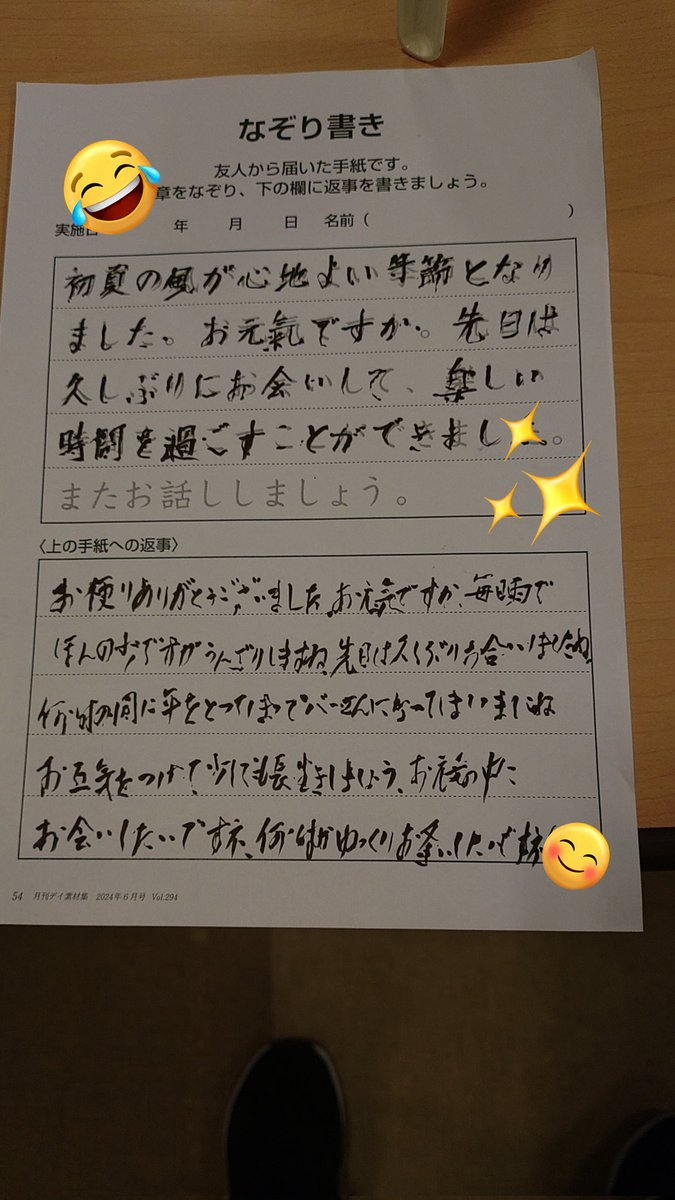 なぞり書き
友人から届いた手紙です。
章をなぞり、下の欄に返事を書きましょう。
実施日 年 月 日 名前( )
初夏の風が心地よい季節となり
ました。お元氣ですか。先日は
久しぶりにお会いして、楽しい
時間を過ごすことができまし
またお話ししましょう。
〈上の手紙への返事〉
お便りありがとうございました、お元氣ですか、毎日雨で
ほんの うんざりしますね、先日は久しぶりお合いしましたね
何時の間に年をとってしまってバーさんになってしまいましたね
お互気をつけて少しでも長生きしましょう、お夜の中に
お会いしたいですネ、何時かゆっくりお逢いしたいです
54 月刊デイ素材集 2024年6月号 Vol.294